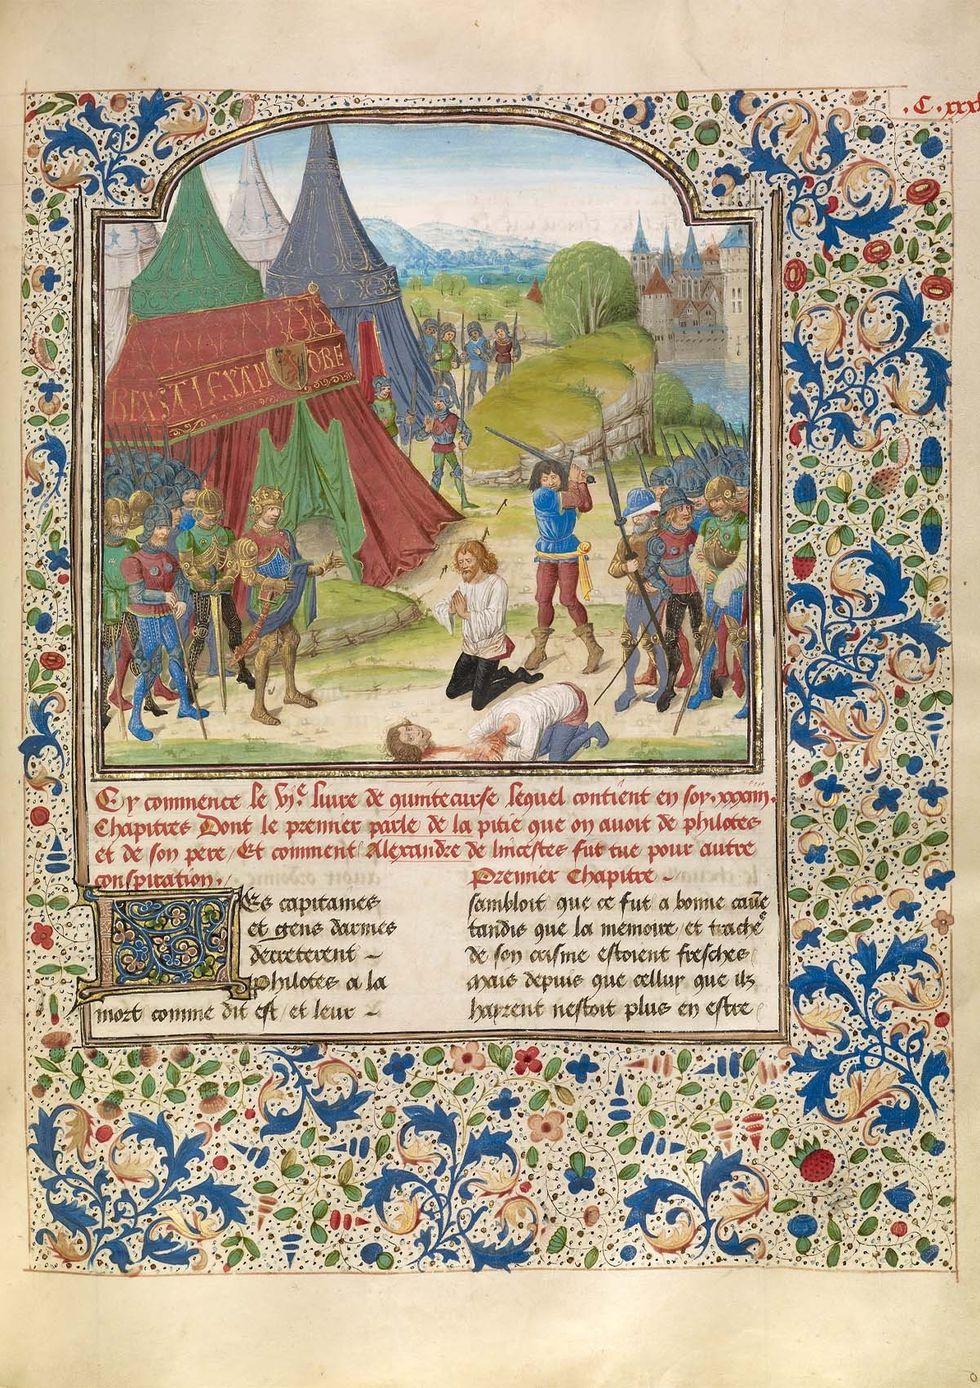 .C.xxxi
REX STALEXAN DRE
Cy commence le vje liure de quintecurse lequel contient en soy .xxxiij.
Chapitres Dont le premier parle de la pitie que on auoit de philotes
et de son pere / Et comment Alexandre de lincestes fut tue pour autre
conspiration.
Premier Chapitre
Les capitaines
et gens darmes
decreterent
Philotes a la
mort comme dit est / et leur
sambloit que ce fut a bonne cause
tandis que la memoire / et trache
de son crisme estoient fresches
Mais depuis que celluy que ilz
hayrent nestoit plus en estre